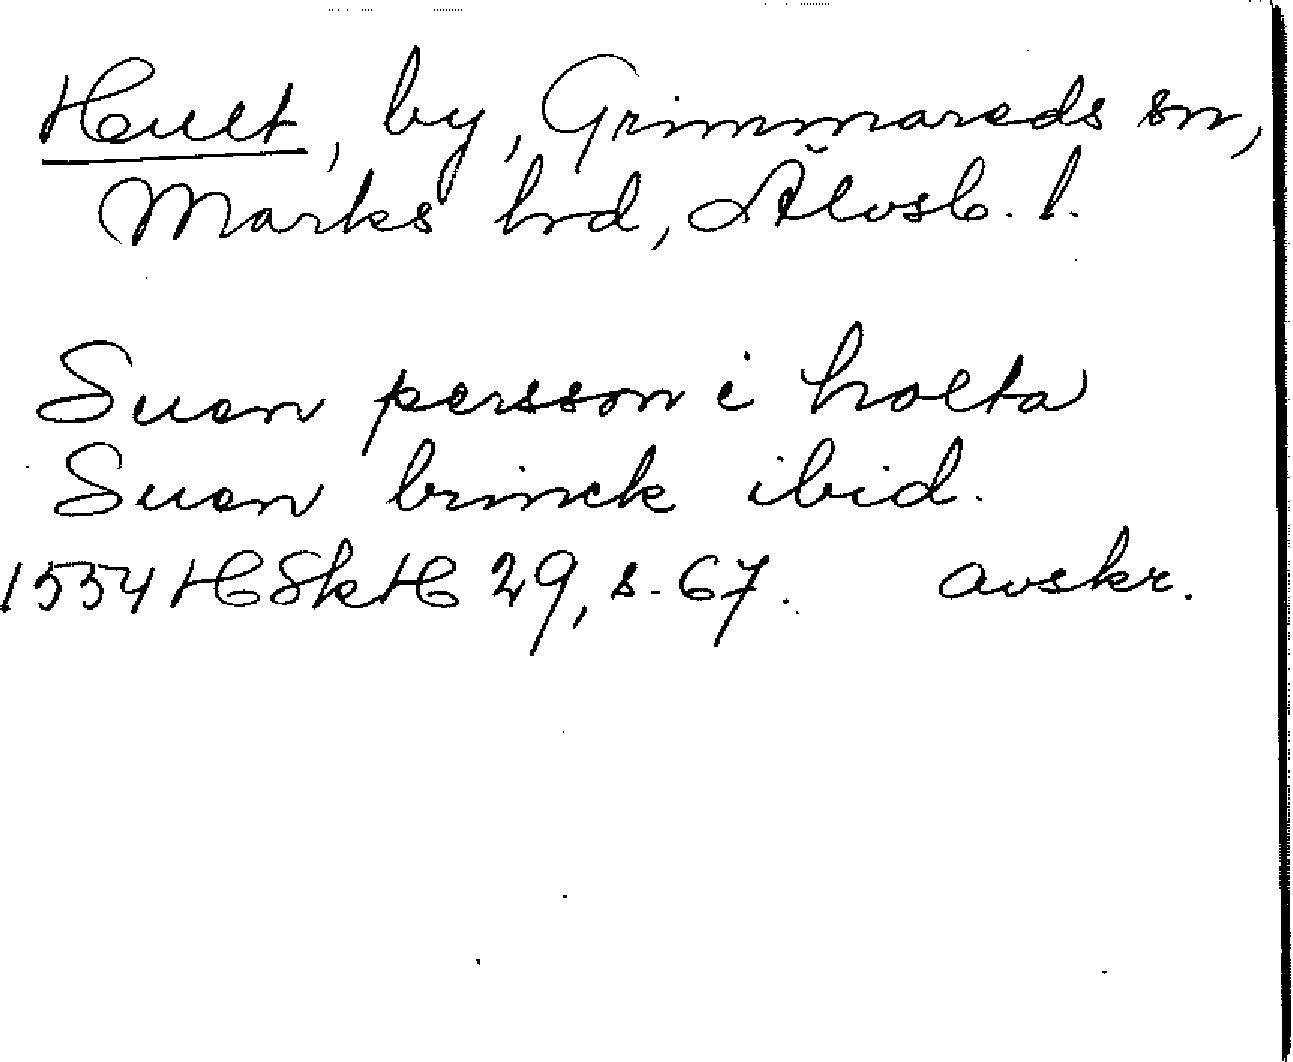 Hult, by, Grimmareds sn,
Marks hrd, Älvsb. l.
Suen persson i holta
Suen brinck ibid.
1554 HSkH 29, s. 67. avskr.